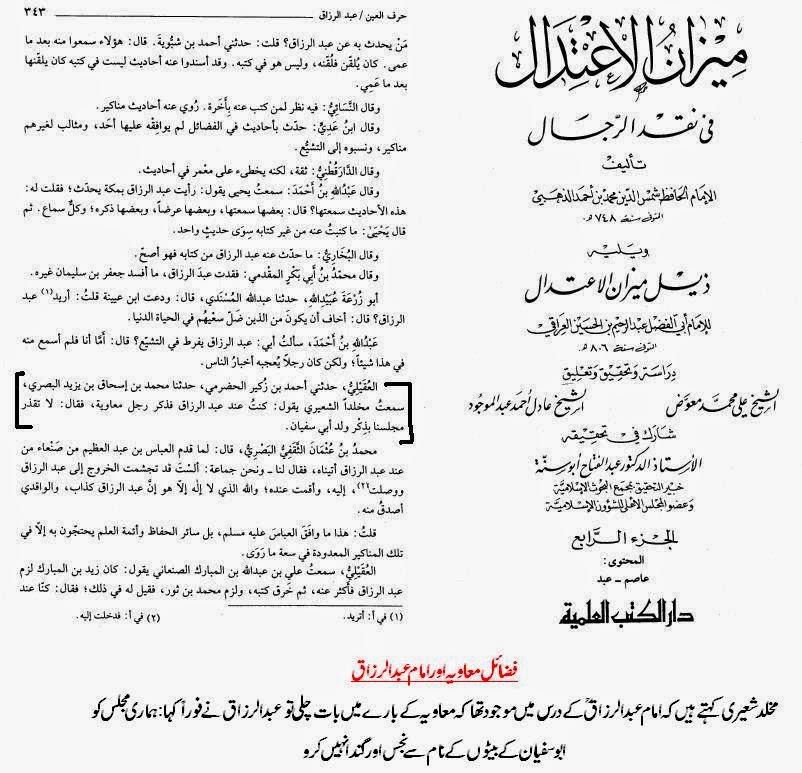 ميزان الاعتدال
في نقد الرجال
تأليف
الإمام الحافظ شمس الدين محمد بن أحمد الذهبي
المتوفى سنة ٧٤٨ هـ
ويليه
ذيل ميزان الاعتدال
للإمام أبي الفضل عبد الرحيم بن الحسين العراقي
المتوفى سنة ٨٠٦ هـ
دراسة وتحقيق وتعليق
الشيخ علي محمد معوض الشيخ عادل أحمد عبد الموجود
شارك في تحقيقه
الأستاذ الدكتور عبد الفتاح أبو سنة
خبير التحقيق بمجمع البحوث الإسلامية
وعضو المجلس الأعلى للشؤون الإسلامية
الجزء الرابع
المحتوى:
عاصم - عبد
دار الكتب العلمية
حرف العين / عبد الرزاق ٣٤٣
مَنْ يحدث به عن عبد الرزاق؟ قلت: حدثني أحمد بن شبُّوية. قال: هؤلاء سمعوا منه بعد ما
عمى. كان يُلقّن فلُقّنه، وليس هو في كتبه. وقد أسندوا عنه أحاديث ليست في كتبه كان يلقّنها
بعد ما عَمِي.
وقال النَّسَائِيُّ: فيه نظر لمن كتب عنه بِأَخَرة. رُوي عنه أحاديث مناكير.
وقال ابنُ عَدِيٍّ: حدّث بأحاديث في الفضائل لم يوافِقْه عليها أحَد، ومثالب لغيرهم
مناكير، ونسبوه إلى التشيُّع.
وقال الدَّارَقُطْنِيُّ: ثقة، لكنه يخطىء على معْمر في أحاديث.
وقال عَبْدُاللهِ بنُ أَحْمَدَ: سمعتُ يحيى يقول: رأيت عبد الرزاق بمكة يحدّث؛ فقلت له:
هذه الأحاديث سمعتها؟ قال: بعضها سمعتها، وبعضها عرضاً، وبعضها ذكره؛ وكلٌّ سماع. ثم
قال يَحْيَىٰ: ما كتبتُ عنه من غير كتابه سِوَى حديثٍ واحد.
وقال البُخَارِيُّ: ما حدّث عنه عبد الرزاق من كتابه فهو أصحّ.
وقال محمّدُ بنُ أَبي بَكْرٍ المقدمي: فقدت عبدَ الرزاق، ما أفسد جعفر بن سليمان غيره.
أبو زُرْعَةَ عُبَيْدِاللهِ، حدثنا عبدالله المُسْنَدي، قال: ودعت ابن عيينة قلتُ: أريد(١) عبد
الرزاق؟ قال: أخاف أن يكونَ من الذين ضَلَّ سعْيهُم في الحياة الدنيا.
عَبْدُاللهِ بنُ أَحْمَدَ، سألتُ أبي: عبد الرزاق يفرط في التشيّع؟ قال: أمَّا أنا فلم أسمع منه
في هذا شيئاً؛ ولكن كان رجلاً يُعجبه أخبارُ الناس.
العُقَيْلِيُّ، حدثني أحمد بن زُكير الحضرمي، حدثنا محمد بن إسحاق بن يزيد البصري،
سمعتُ مخلداً الشعيري يقول: كنتُ عند عبد الرزاق فذكر رجل معاوية، فقال: لا تقذر
مجلسنا بذِكْر ولد أبي سفيان.
محمدُ بنُ عُثْمَانَ الثَّقَفِيُّ البَصْرِيُّ، قال: لما قدم العباس بن عبد العظيم من صَنْعاء من
عند عبد الرزاق أتيناه، فقال لنا ـ ونحن جماعة: ألسْتَ قد تجشمت الخروج إلى عبد الرزاق
ووصلت(٢)، إليه، وأقمت عنده؛ والله الذي لا إلٰه إلا هو إنَّ عبد الرزاق كذاب، والواقدي
أصدقُ منه.
قلتُ: هذا ما وافَقَ العباسَ عليه مسلم، بل سائر الحفاظ وأئمة العلم يحتجّون به إلّا في
تلك المناكير المعدودة في سعة ما رَوَى.
العُقَيْلِيُّ، سمعتُ علي بن عبدالله بن المبارك الصنعاني يقول: كان زيد بن المبارك لزم
عبد الرزاق فأَكثر عنه، ثم خرق كتبه، ولزم محمد بن ثور، فقيل له في ذلك؛ فقال: كنّا عند
(١) في أ: أتريد. (٢) في أ: فدخلت إليه.
فضائل معاویہ اور امام عبدالرزاق
مخلد شعیری کہتے ہیں کہ امام عبدالرزاقؒ کے درس میں موجود تھا کہ معاویہ کے بارے میں بات چلی تو عبدالرزاق نے فوراً کہا: ہماری مجلس کو
ابوسفیان کے بیٹوں کے نام سے نجس اور گندا نہیں کرو